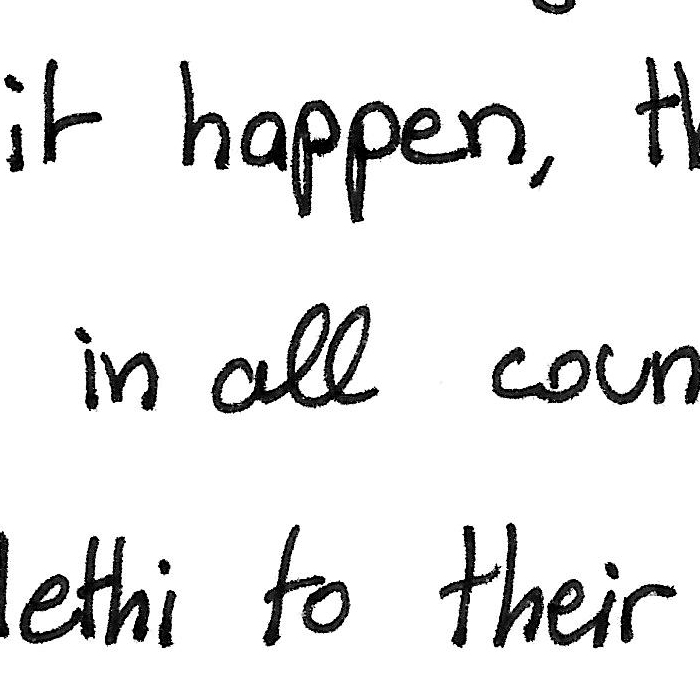 it happen, th
in all coun
lethi to their